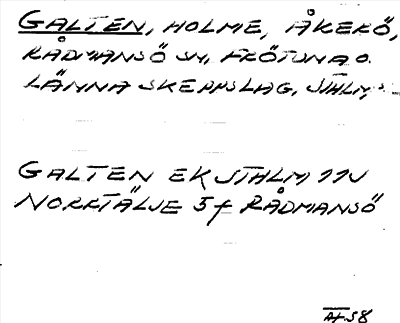 GALTEN, HOLME, ÅKERÖ,
RÅDMANSÖ SN, FRÖTUNA O.
LÄNNA SKEPPSLAG, STHLM,
GALTEN EK STHLM 11J
NORRTÄLJE 5f RÅDMANSÖ